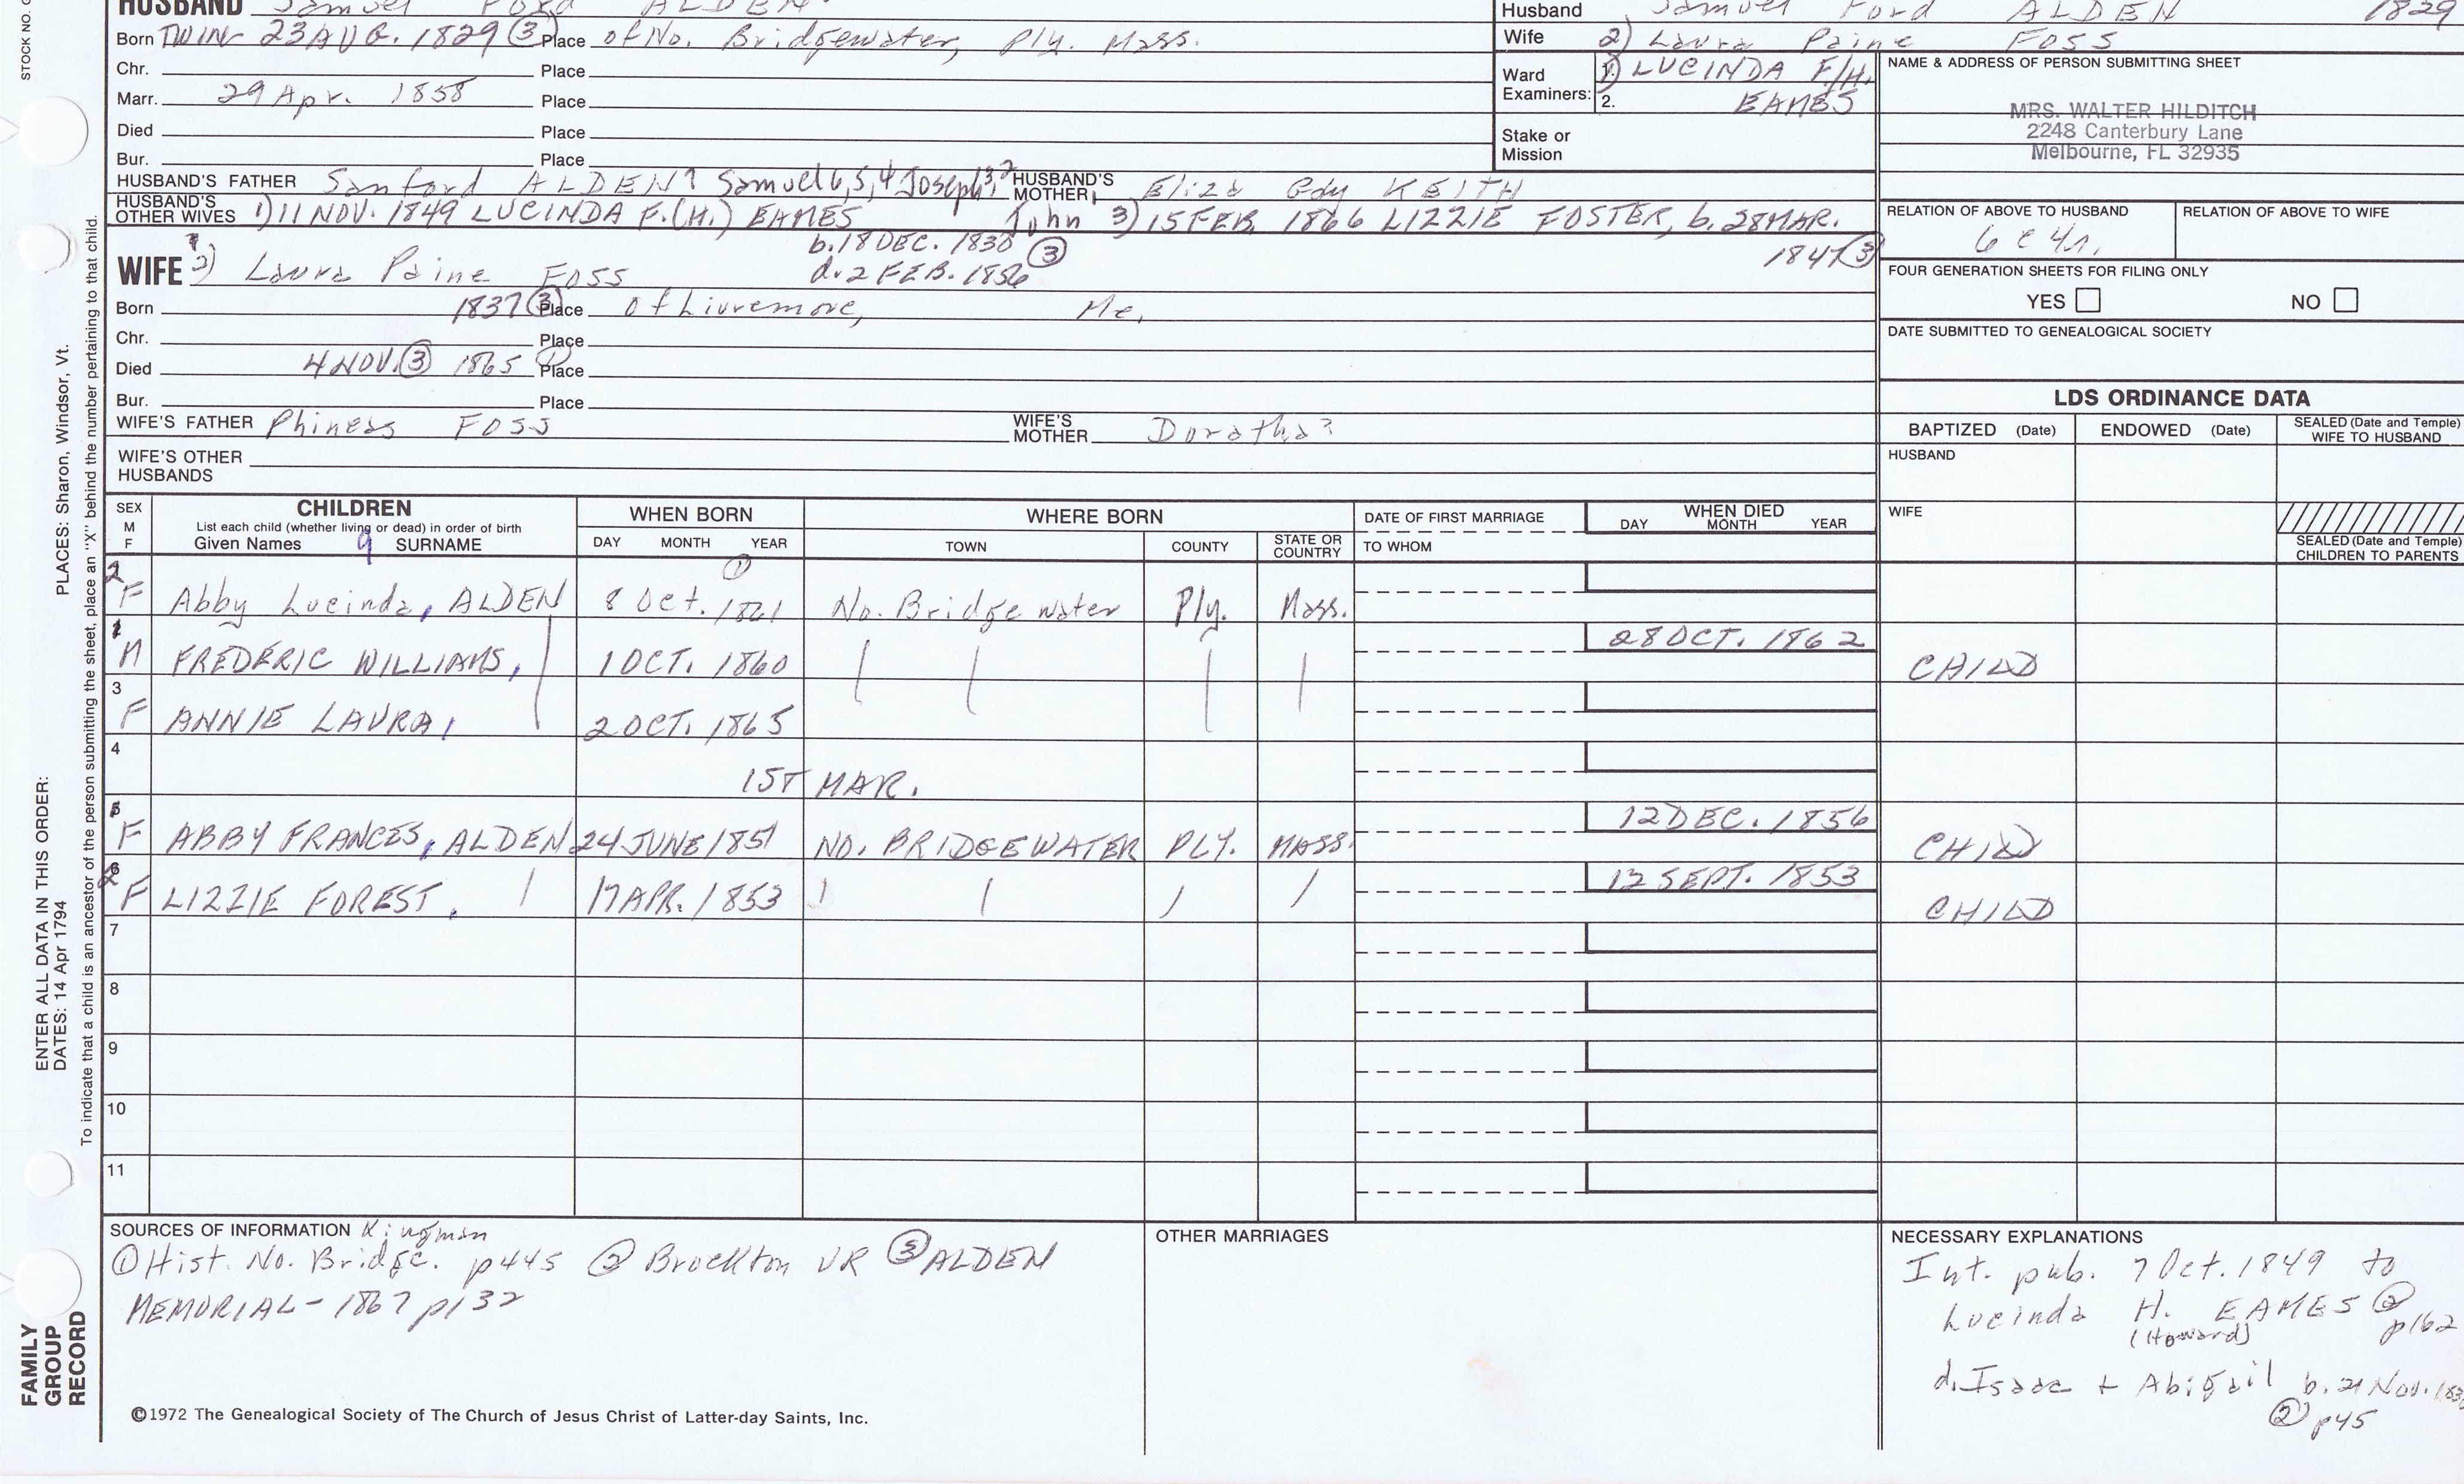 STOCK NO.
HUSBAND Samuel Ford ALDEN
Born TWIN 23 AUG. 1829 ③ Place of No. Bridgewater, Ply. Mass.
Chr. Place
Marr. 29 Apr. 1858 Place
Died Place
Bur. Place
HUSBAND'S FATHER Sanford ALDEN7 Samuel6,5,4 Joseph3,2 John HUSBAND'S MOTHER Eliza Edy KEITH
HUSBAND'S OTHER WIVES 1) 11 NOV. 1849 LUCINDA F.(H.) EAMES 3) 15 FEB. 1866 LIZZIE FOSTER, b. 28 MAR. 1847 ③
b. 18 DEC. 1830 ③
d. 2 FEB. 1856
WIFE 2) Laura Paine FOSS
Born 1837 ③ Place of Livremore, Me.
Chr. Place
Died 4 NOV. ③ 1865 Place
Bur. Place
WIFE'S FATHER Phineas FOSS WIFE'S MOTHER Doratha?
WIFE'S OTHER HUSBANDS
Husband Samuel Ford ALDEN 1829
Wife 2) Laura Paine FOSS
Ward Examiners: 1) LUCINDA F/H.
2. EAMES
Stake or Mission
NAME & ADDRESS OF PERSON SUBMITTING SHEET
MRS. WALTER HILDITCH
2248 Canterbury Lane
Melbourne, FL 32935
RELATION OF ABOVE TO HUSBAND RELATION OF ABOVE TO WIFE
6 c 4r.
FOUR GENERATION SHEETS FOR FILING ONLY
YES NO
DATE SUBMITTED TO GENEALOGICAL SOCIETY
LDS ORDINANCE DATA
BAPTIZED (Date) ENDOWED (Date) SEALED (Date and Temple) WIFE TO HUSBAND
HUSBAND
WIFE
SEALED (Date and Temple) CHILDREN TO PARENTS
SEX M F CHILDREN WHEN BORN WHERE BORN DATE OF FIRST MARRIAGE WHEN DIED
List each child (whether living or dead) in order of birth
Given Names SURNAME DAY MONTH YEAR TOWN COUNTY STATE OR COUNTRY TO WHOM DAY MONTH YEAR
①
2 F Abby Lucinda, ALDEN 8 Oct. 1861 No. Bridgewater Ply. Mass.
1 M FREDERIC WILLIAMS, 1 OCT. 1860 28 OCT. 1862 CHILD
3 F ANNIE LAURA, 2 OCT. 1865
4 1ST MAR.
5 F ABBY FRANCES, ALDEN 24 JUNE 1851 NO. BRIDGEWATER PLY. MASS. 12 DEC. 1856 CHILD
2 F LIZZIE FOREST, 17 APR. 1853 12 SEPT. 1853 CHILD
7
8
9
10
11
SOURCES OF INFORMATION Kingman
① Hist. No. Bridge. p445 ② Brockton VR ③ ALDEN
MEMORIAL - 1867 p132
OTHER MARRIAGES
NECESSARY EXPLANATIONS
Int. pub. 7 Oct. 1849 to
Lucinda H. EAMES ②
(Howard) p162
d. Isaac + Abigail b. 21 Nov. 
② p45
©1972 The Genealogical Society of The Church of Jesus Christ of Latter-day Saints, Inc.
ENTER ALL DATA IN THIS ORDER:
DATES: 14 Apr 1794
PLACES: Sharon, Windsor, Vt.
To indicate that a child is an ancestor of the person submitting the sheet, place an "X" behind the number pertaining to that child.
FAMILY
GROUP
RECORD